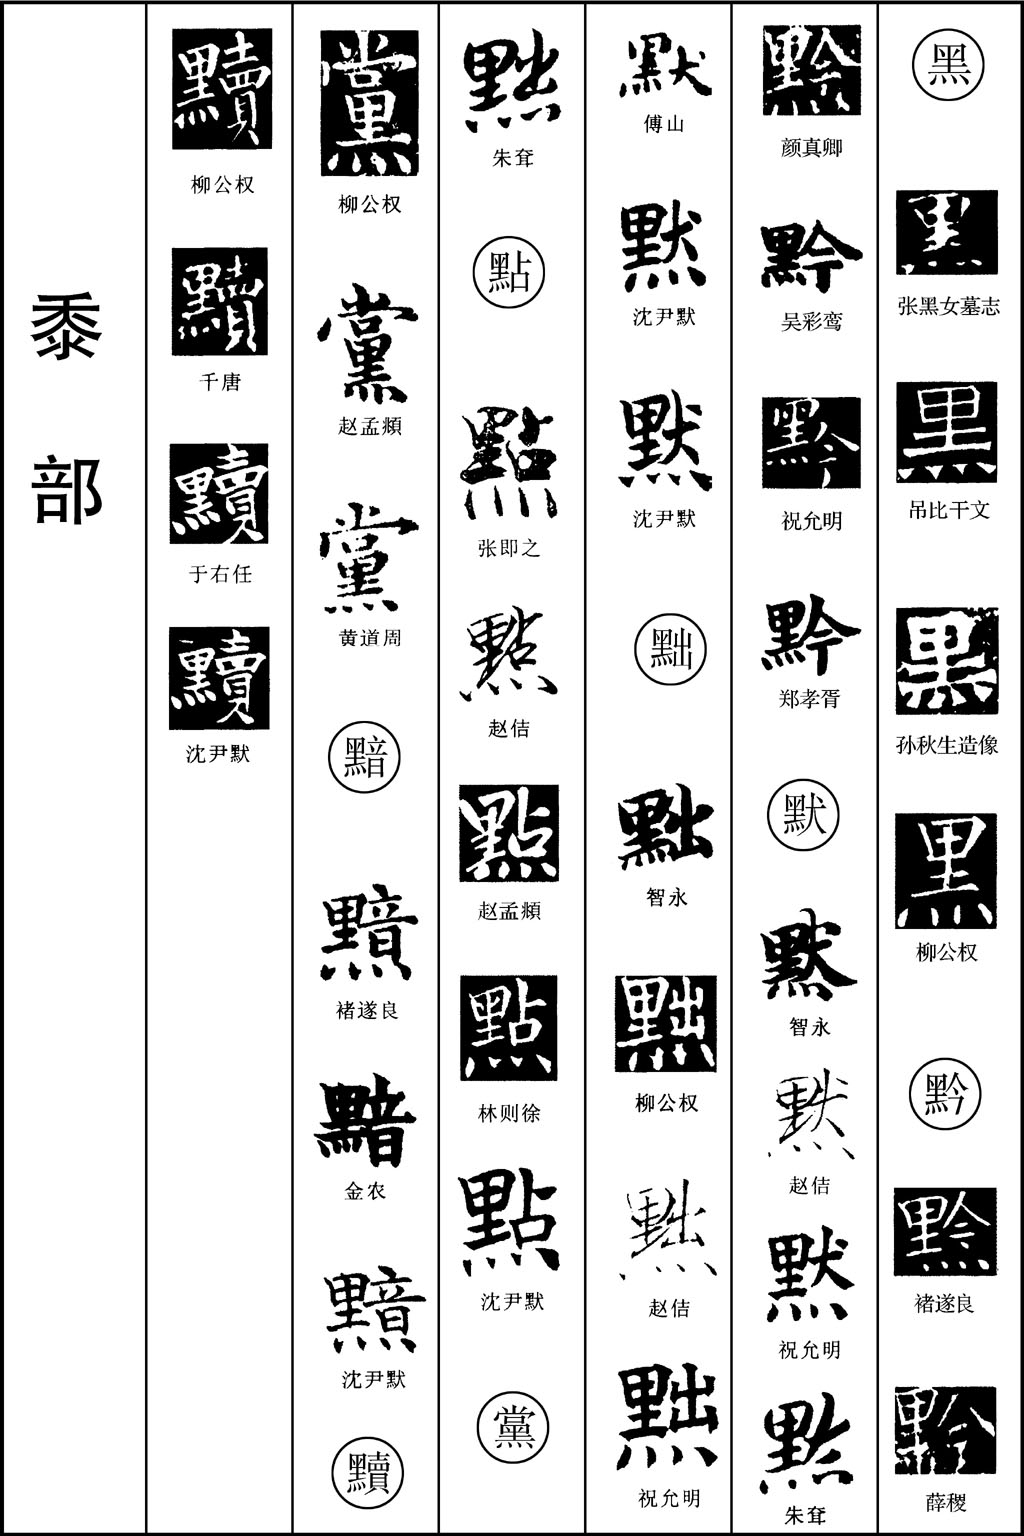 黑
黑
张黑女墓志
黑
吊比干文
黑
孙秋生造像
黑
柳公权
黔
黔
褚遂良
黔
薛稷
黔
颜真卿
黔
吴彩鸾
黔
祝允明
黔
郑孝胥
默
默
智永
默
赵佶
默
祝允明
點
朱耷
默
傅山
默
沈尹默
默
沈尹默
黜
黜
智永
黜
柳公权
黜
赵佶
黜
祝允明
黜
朱耷
點
點
张即之
點
赵佶
點
赵孟頫
點
林则徐
點
沈尹默
黨
黨
柳公权
黨
赵孟頫
黨
黄道周
黯
黯
褚遂良
黯
金农
黯
沈尹默
黷
黷
柳公权
黷
千唐
黷
于右任
黷
沈尹默
黍部